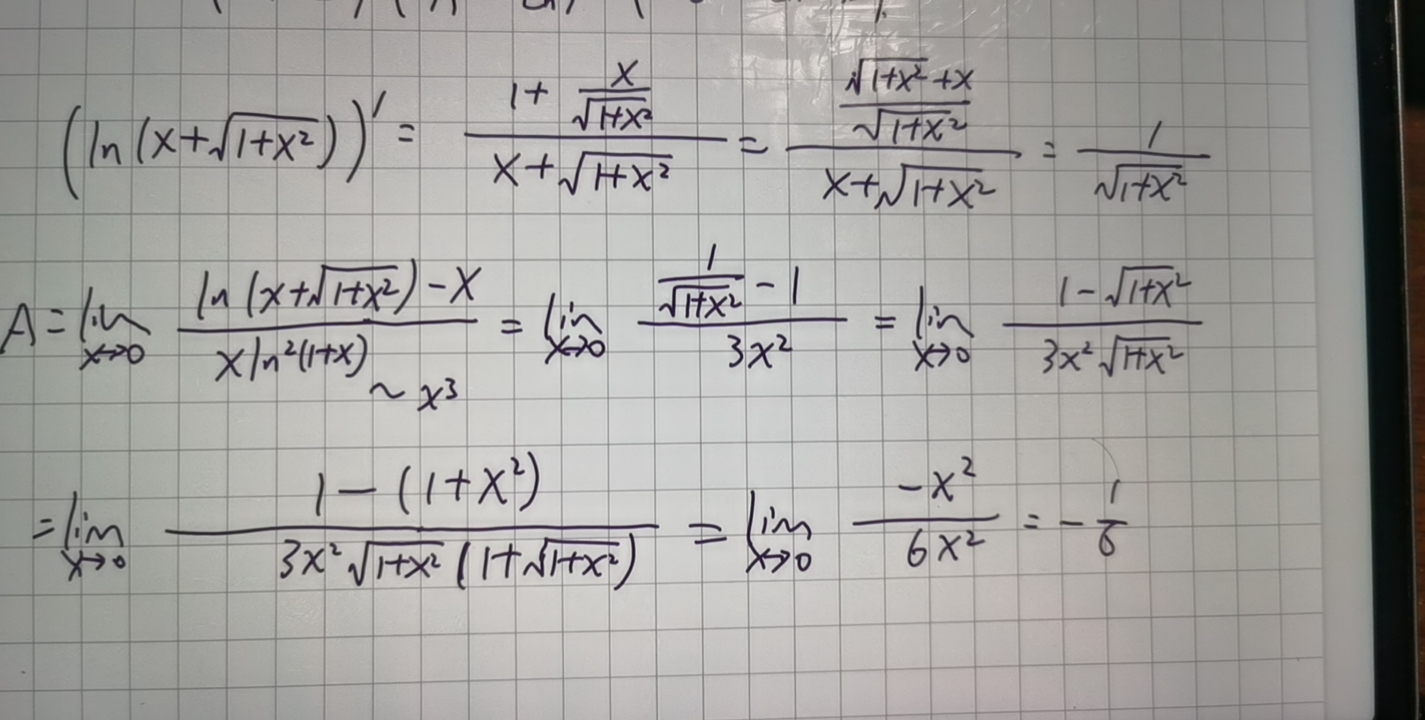 (ln(x+√(1+x²)))′ = (1 + x/√(1+x²))/(x+√(1+x²)) = ((√(1+x²)+x)/√(1+x²))/(x+√(1+x²)) = 1/√(1+x²)
A = lim x→0 (ln(x+√(1+x²))-x)/(x ln²(1+x)) ~ x³ = lim x→0 (1/√(1+x²) - 1)/(3x²) = lim x→0 (1-√(1+x²))/(3x²√(1+x²))
= lim x→0 (1-(1+x²))/(3x²√(1+x²)(1+√(1+x²))) = lim x→0 (-x²)/(6x²) = -1/6